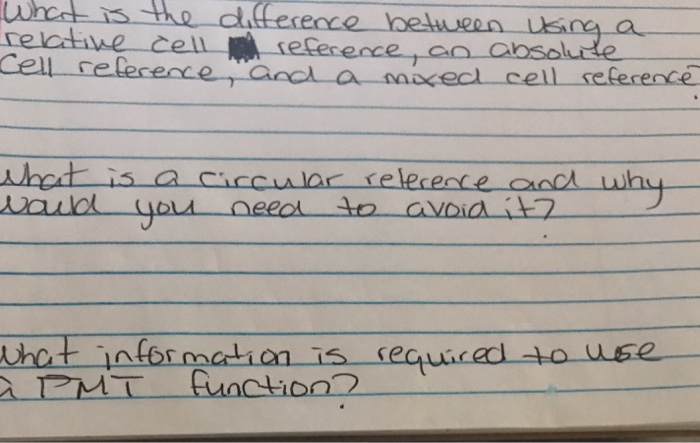 What is the difference between using a
relative cell reference, an absolute
Cell reference, and a mixed cell reference?
what is a circular reference and why
would you need to avoid it?
what information is required to use
a PMT function?